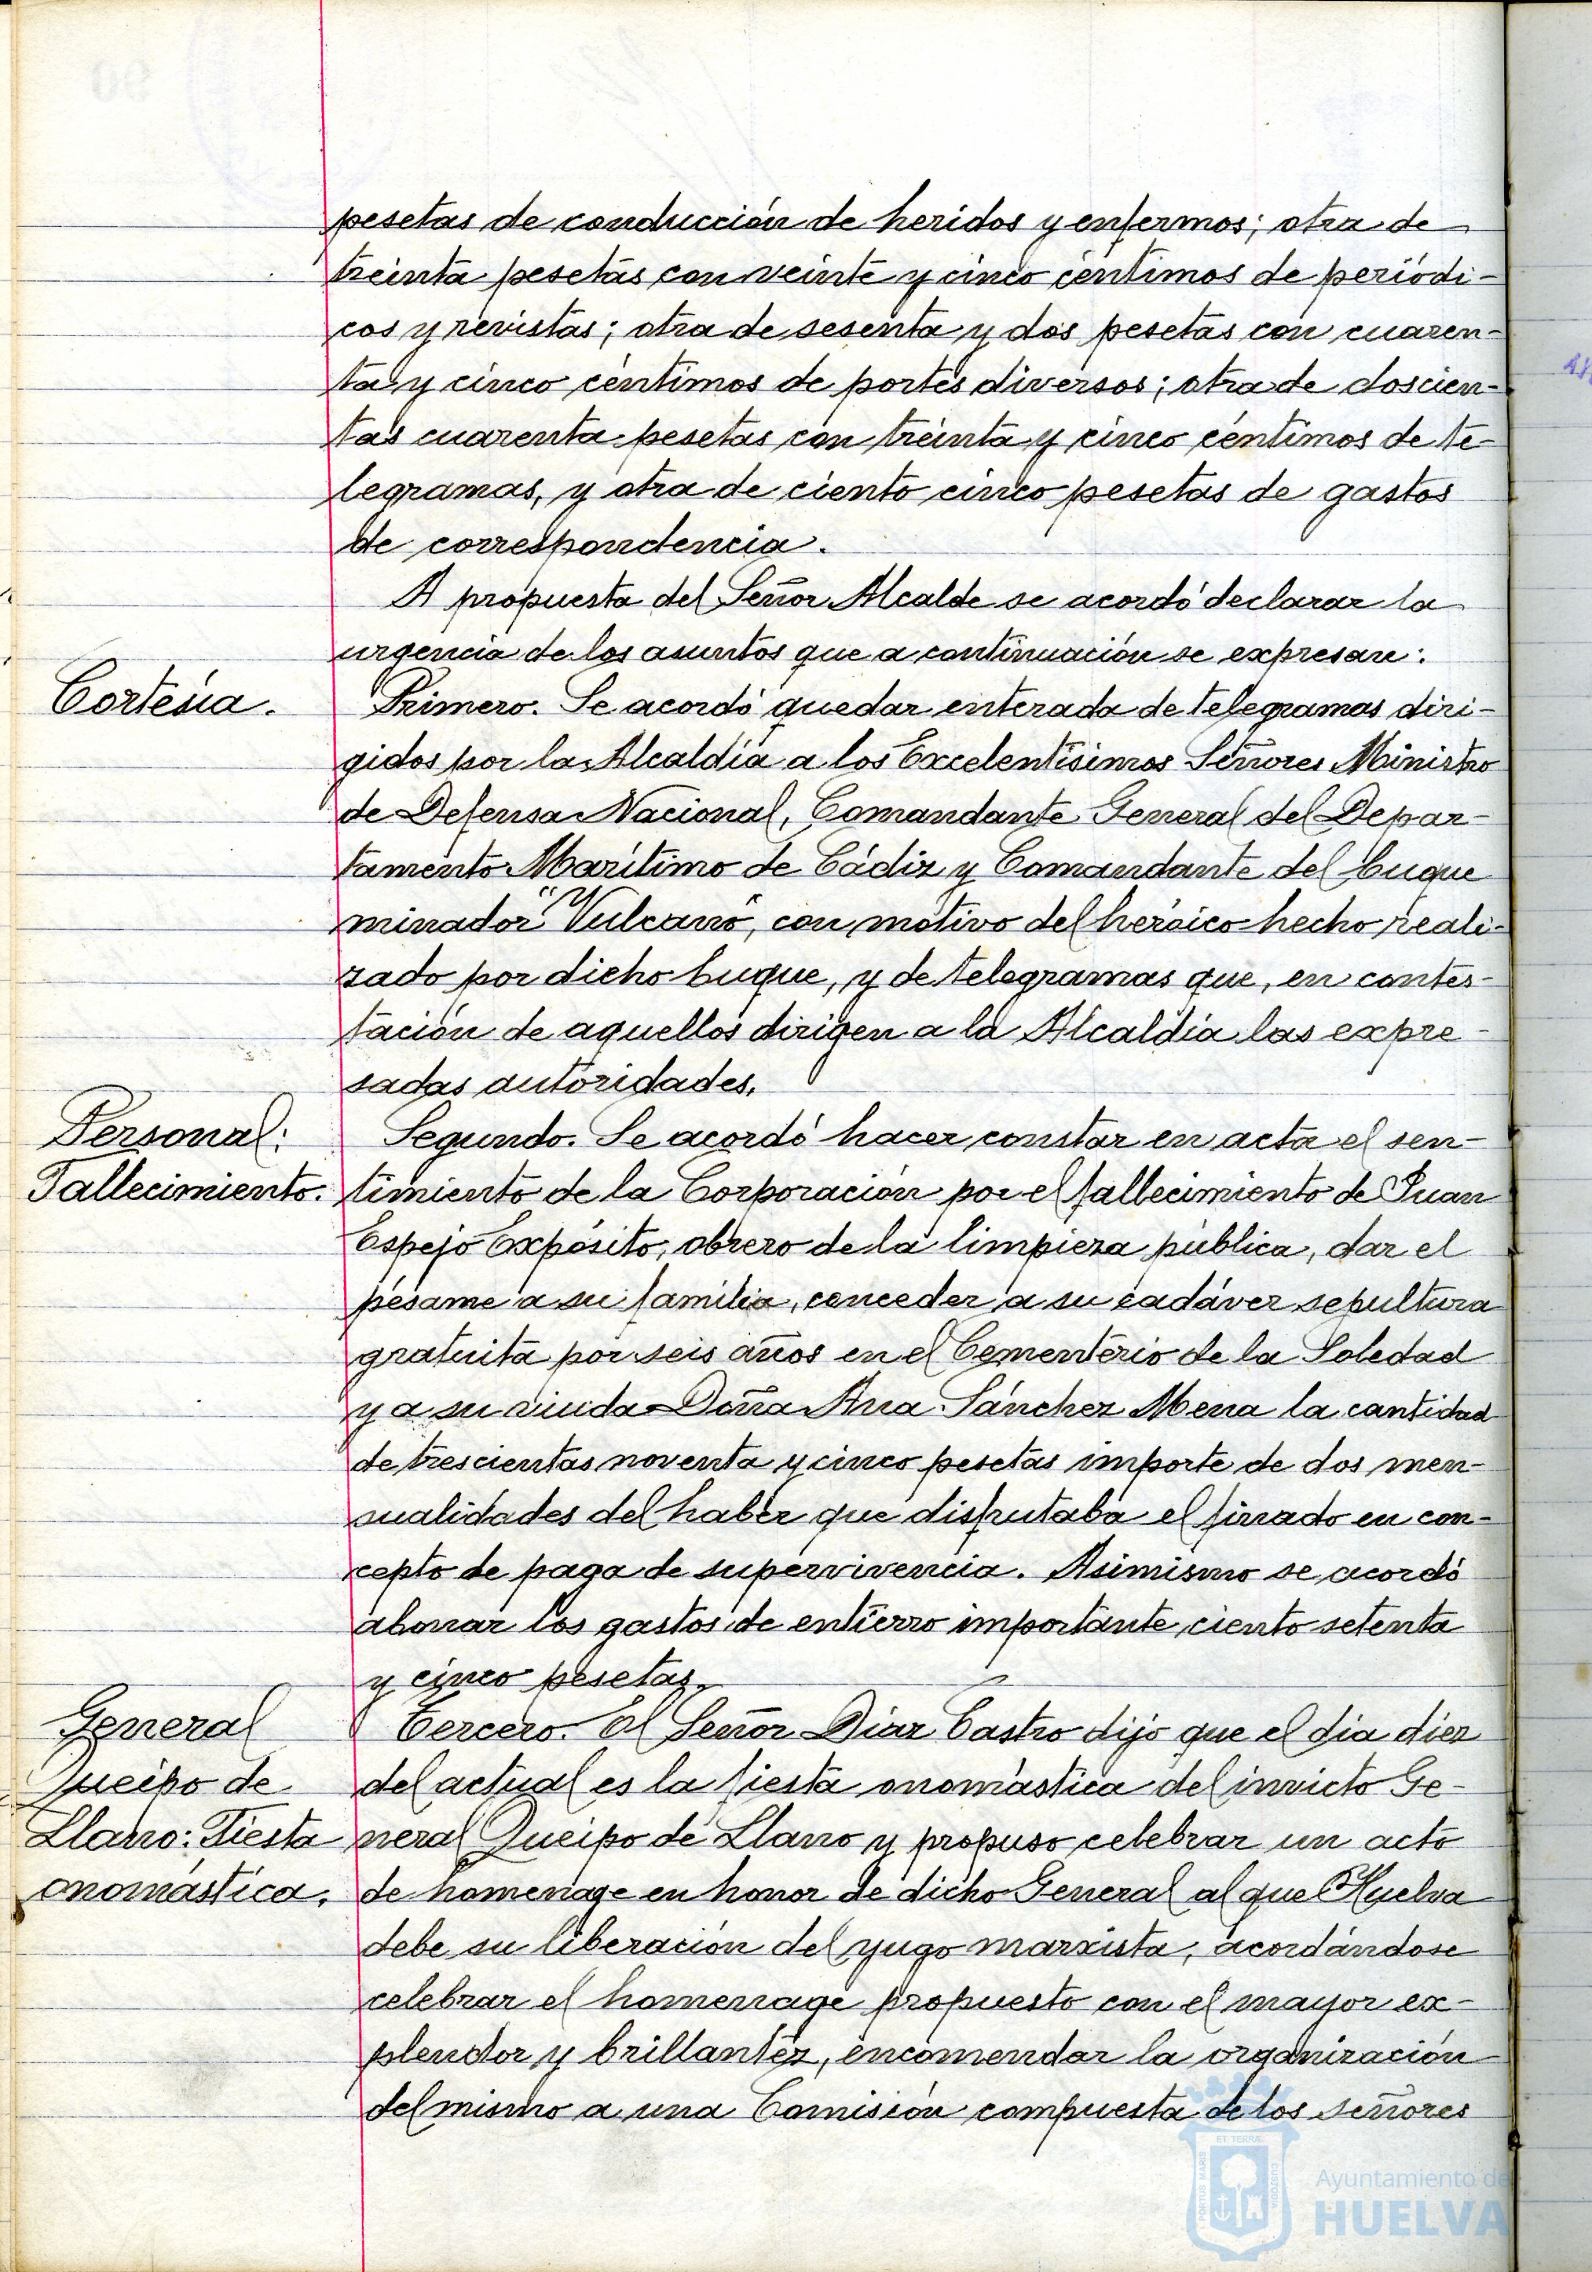 pesetas de conducción de heridos y enfermos; otra de
treinta pesetas con veinte y cinco centimos de periódi-
cos y revistas; otra de sesenta y dos pesetas con cuaren-
ta y cinco céntimos de portes diversos; otra de doscien-
tas cuarenta pesetas con treinta y cinco céntimos de te-
legramas, y otra de ciento cinco pesetas de gastos
de correspondencia.
A propuesta del Señor Alcalde se acordó declarar la
urgencia de los asuntos que a continuación se expresan:
Cortesía.
Primero. Se acordó quedar enterada de telegramas diri-
gidos por la Alcaldía a los Excelentísimos Señores Ministro
de Defensa Nacional, Comandante General del Depar-
tamento Marítimo de Cádiz y Comandante del buque
minador "Vulcano", con motivo del heróico hecho reali-
zado por dicho buque, y de telegramas que, en contes-
tación de aquellos dirigen a la Alcaldía las expre-
sadas autoridades.
Personal:
Fallecimiento.
Segundo. Se acordó hacer constar en acta el sen-
timiento de la Corporación por el fallecimiento de Juan
Espejo Expósito, obrero de la limpieza pública, dar el
pésame a su familia, conceder a su cadáver sepultura
gratuita por seis años en el Cementerio de la Soledad
y a su viuda Doña Ana Sánchez Mena la cantidad
de trescientas noventa y cinco pesetas importe de dos men-
sualidades del haber que disfrutaba el finado en con-
cepto de paga de supervivencia. Asimismo se acordó
abonar los gastos de entierro importante ciento setenta
y cinco pesetas.
General
Queipo de
Llano: Fiesta
onomástica.
Tercero. El Señor Díaz Castro dijo que el dia diez
del actual es la fiesta onomástica del invicto Ge-
neral Queipo de Llano y propuso celebrar un acto
de homenage en honor de dicho General al que Huelva
debe su liberación del yugo marxista, acordándose
celebrar el homenage propuesto con el mayor ex-
plendor y brillantéz, encomendar la organización
del mismo a una Comisión compuesta de los señores
PORTUS MARIS
ET TERRAE
CUSTODIA
Ayuntamiento de
HUELVA